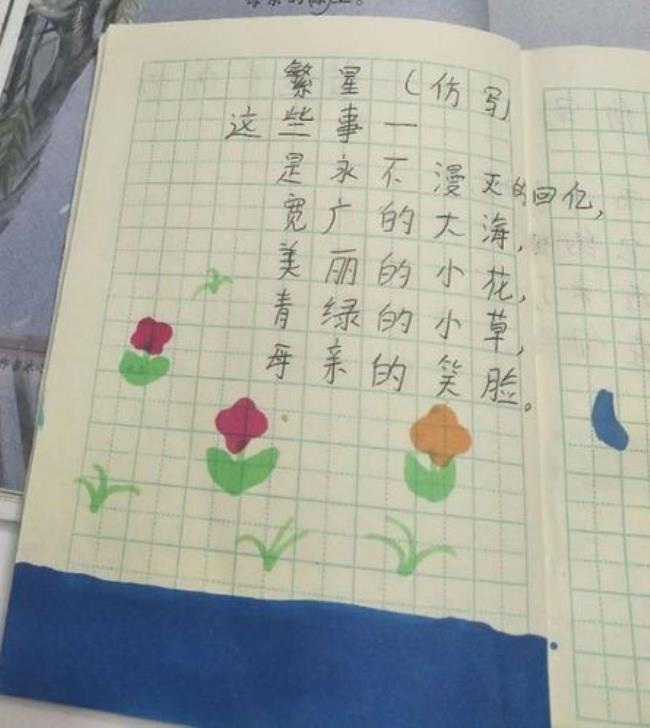 繁星（仿写
这些事一
是永不漫灭的回亿，
宽广的大海，
美丽的小花，
青绿的小草，
母亲的笑脸。